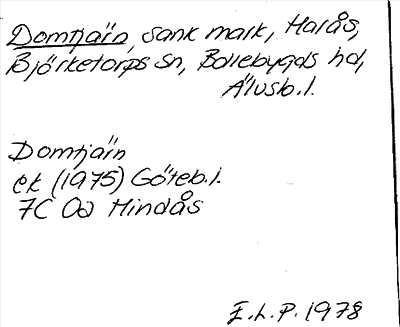 Domtjärn, sank mark, Harås,
Björketorps sn, Bollebygds hd,
Älvsb.l.
Domtjärn
ek (1975) Göteb.l.
7C 0a Hindås
I.L.P. 1978